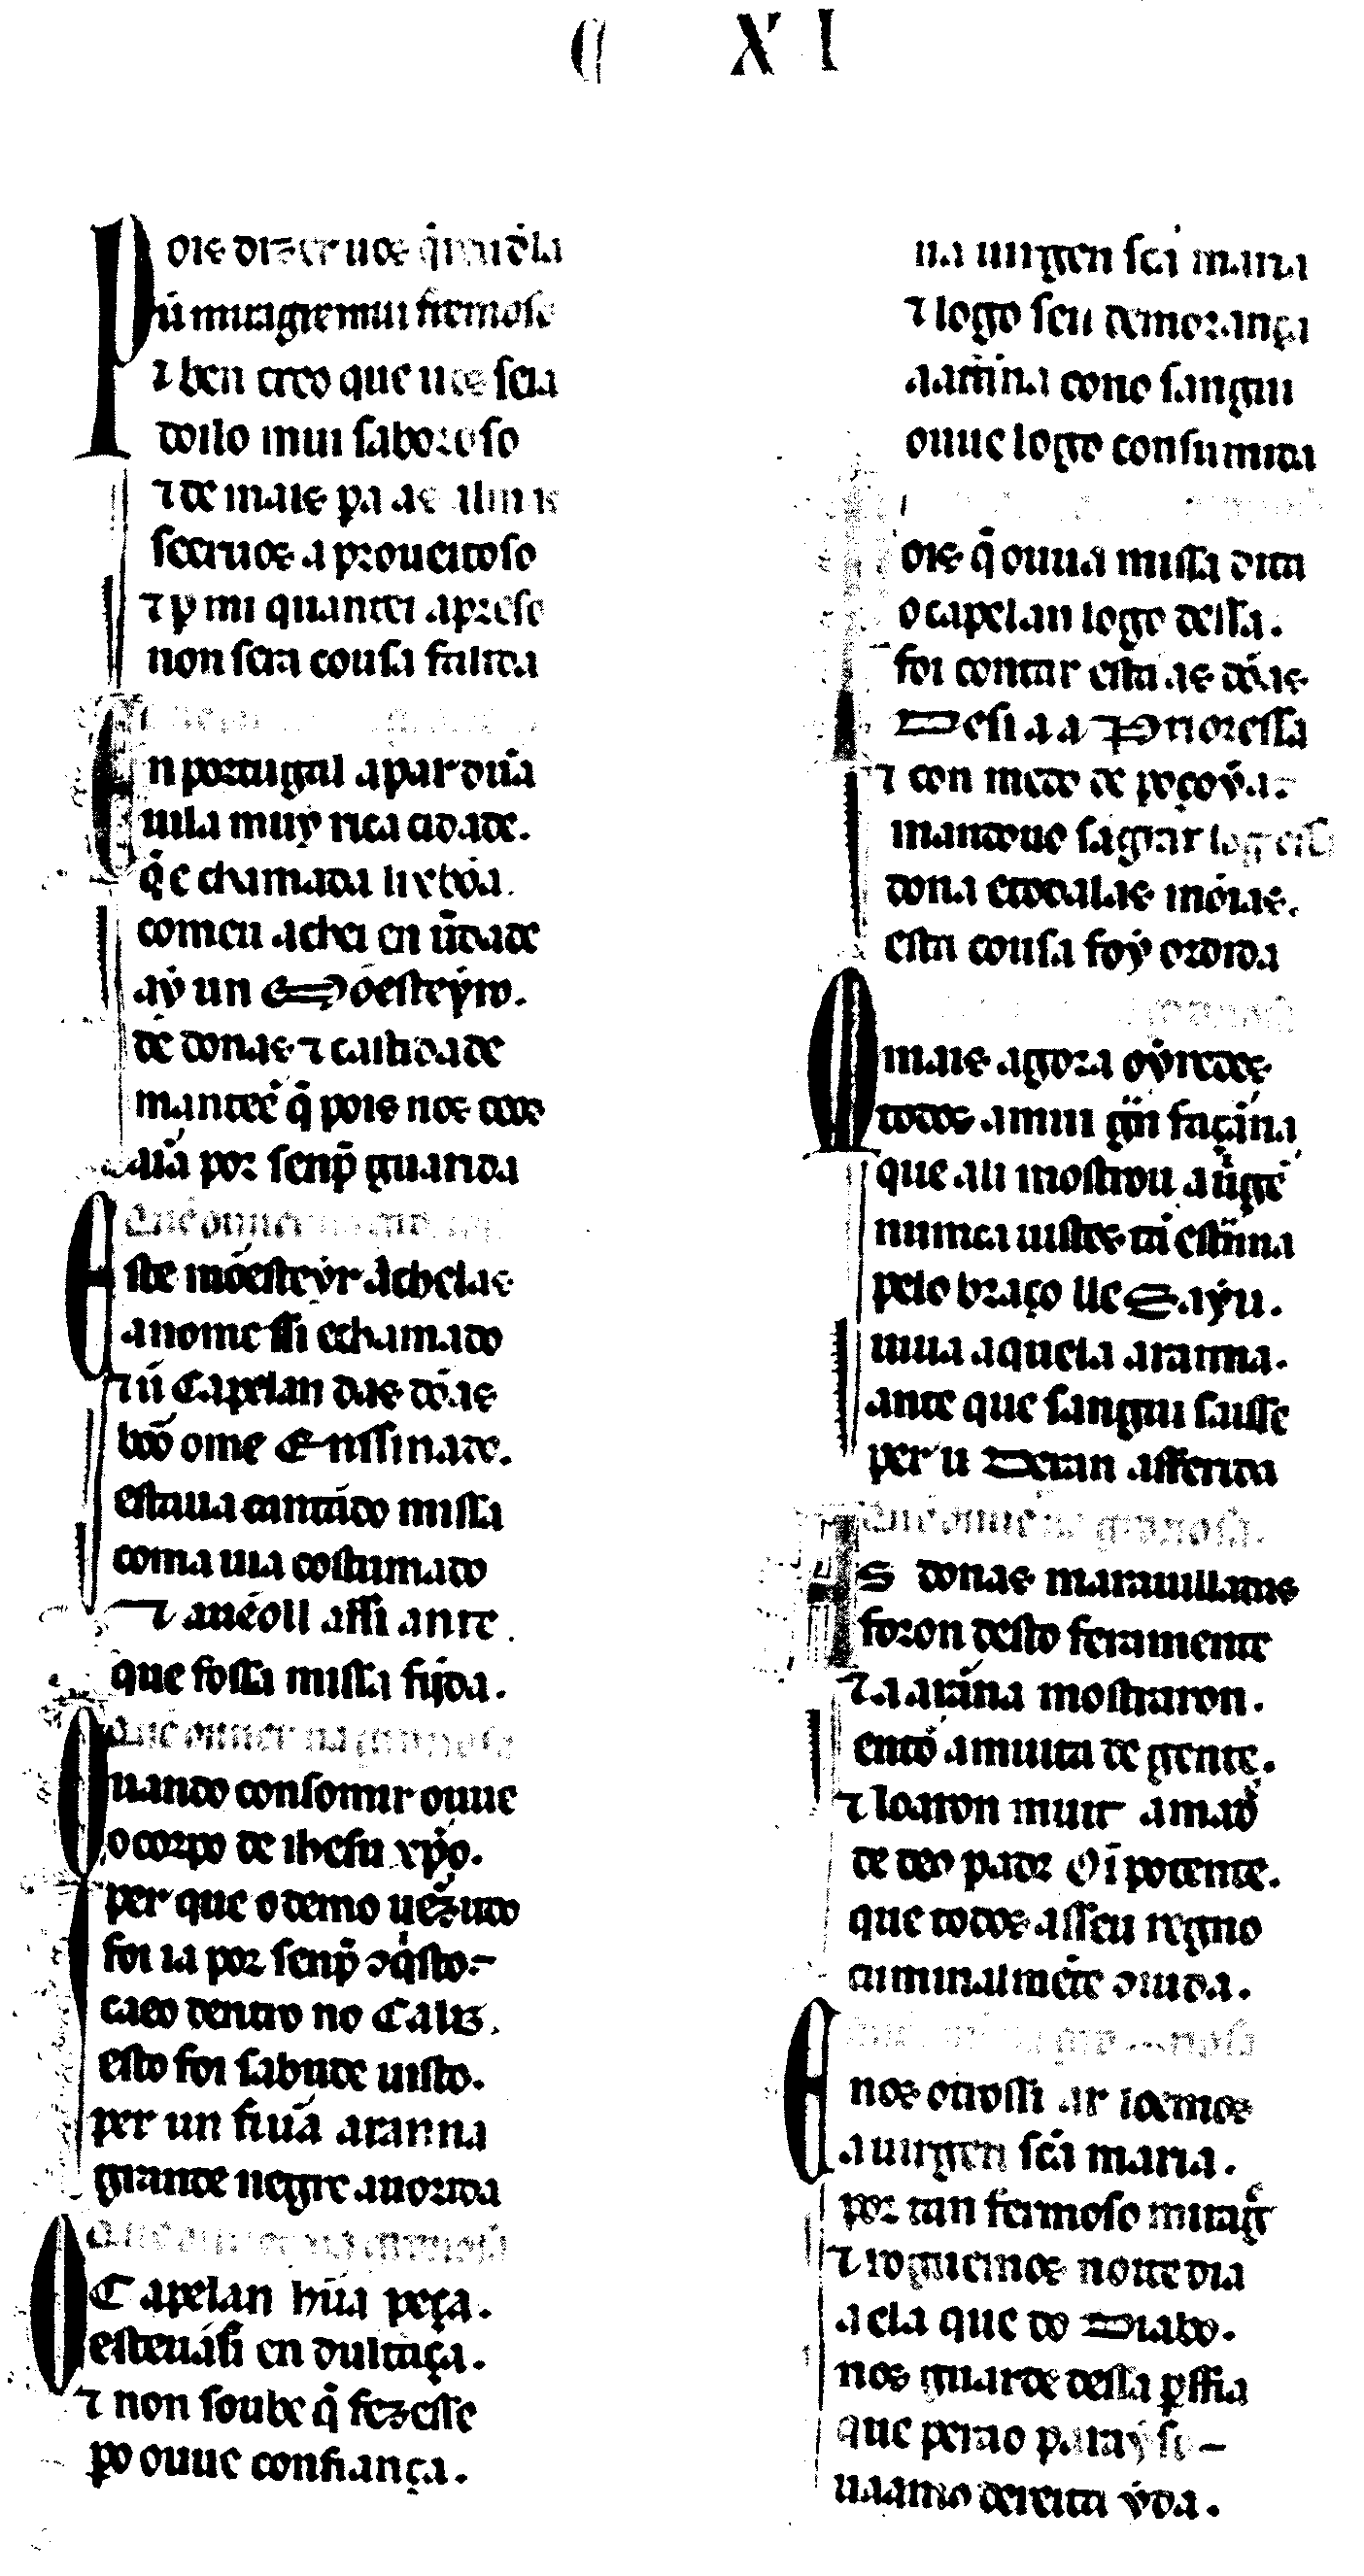 C XI
Pois dizer uos q̇ren dela
ũ miragre mui fremoso
⁊ ben creo que uos seia
doilo mui saboroso
⁊ de mais pa as almas
seeruos a proueitoso
⁊ ꝑ mi quantei apreso
non sera cousa falida
En portugal apar dũa
uila muy rica cidade.
q̇ e chamada lixbõa.
comeu achei en ũdade
aẏ un Mõesteẏro.
de donas ⁊ caschidade
manteẽ q̄ pois nos ceos
aiã por senp̄ guarida
Que ouuer na
Este mõesteẏr Achelas
anomessi echamado
⁊ ũ Capelan das dõas
bõo ome Enssinado.
estaua cantãdo missa
coma uia costumado
⁊ auẽoll assi ante.
que fossa missa fijda.
Que ouuer na groriosa
Quando consomir ouue
o corpo de ihesu xp̃o.
per que o demo uẽzudo
foi ia por senp̄ ↄq̇sto.
caeo dentro no Caliz.
esto foi sabude uisto.
per un fiuã aranna
grande negre auorrida
Que ouuer na groriosa
O Capelan hũa peça.
esteuassi en dultãça.
⁊ non soube q̄ fezesse
po ouue confiança.
na uirgen sc̃a maria
⁊ logo seu demorança
a arãna cono sangui
ouue logo consumida
Pois q̄ ouua missa dita
o capelan logo dessa.
foi contar esta as dõas
Desi a a Prioressa
⁊ con medo de poçoỹa.
mandoue sagrar log essa
dona e todalas mõias.
esta cousa foẏ ordida
Mais agora oẏredes
todos a mui gr̃n façãna
que ali mostrou a uirgẽ
nunca uistes tã estr̃ina
pelo braço lle Saẏu.
uiua aquela aranna.
ante que sangui saisse
per u Deran afferida
Que ouuer na groriosa.
As donas marauilladas
foron desto feramente
⁊ a arãna mostraron.
entõ a muita de gente.
⁊ loaron muit a madr̃
de deo padr Oĩpotente.
que todos asseu regno
cuminalmẽte ↄuida.
Enos otrossi ar loemos
a uirgen sc̃a maria.
por tan fermoso mirag̃
⁊ roguemos noite dia
a ela que do Diabo.
nos guarde dessa ꝑffia
que perao paraẏso
uaamo dereita ẏda.